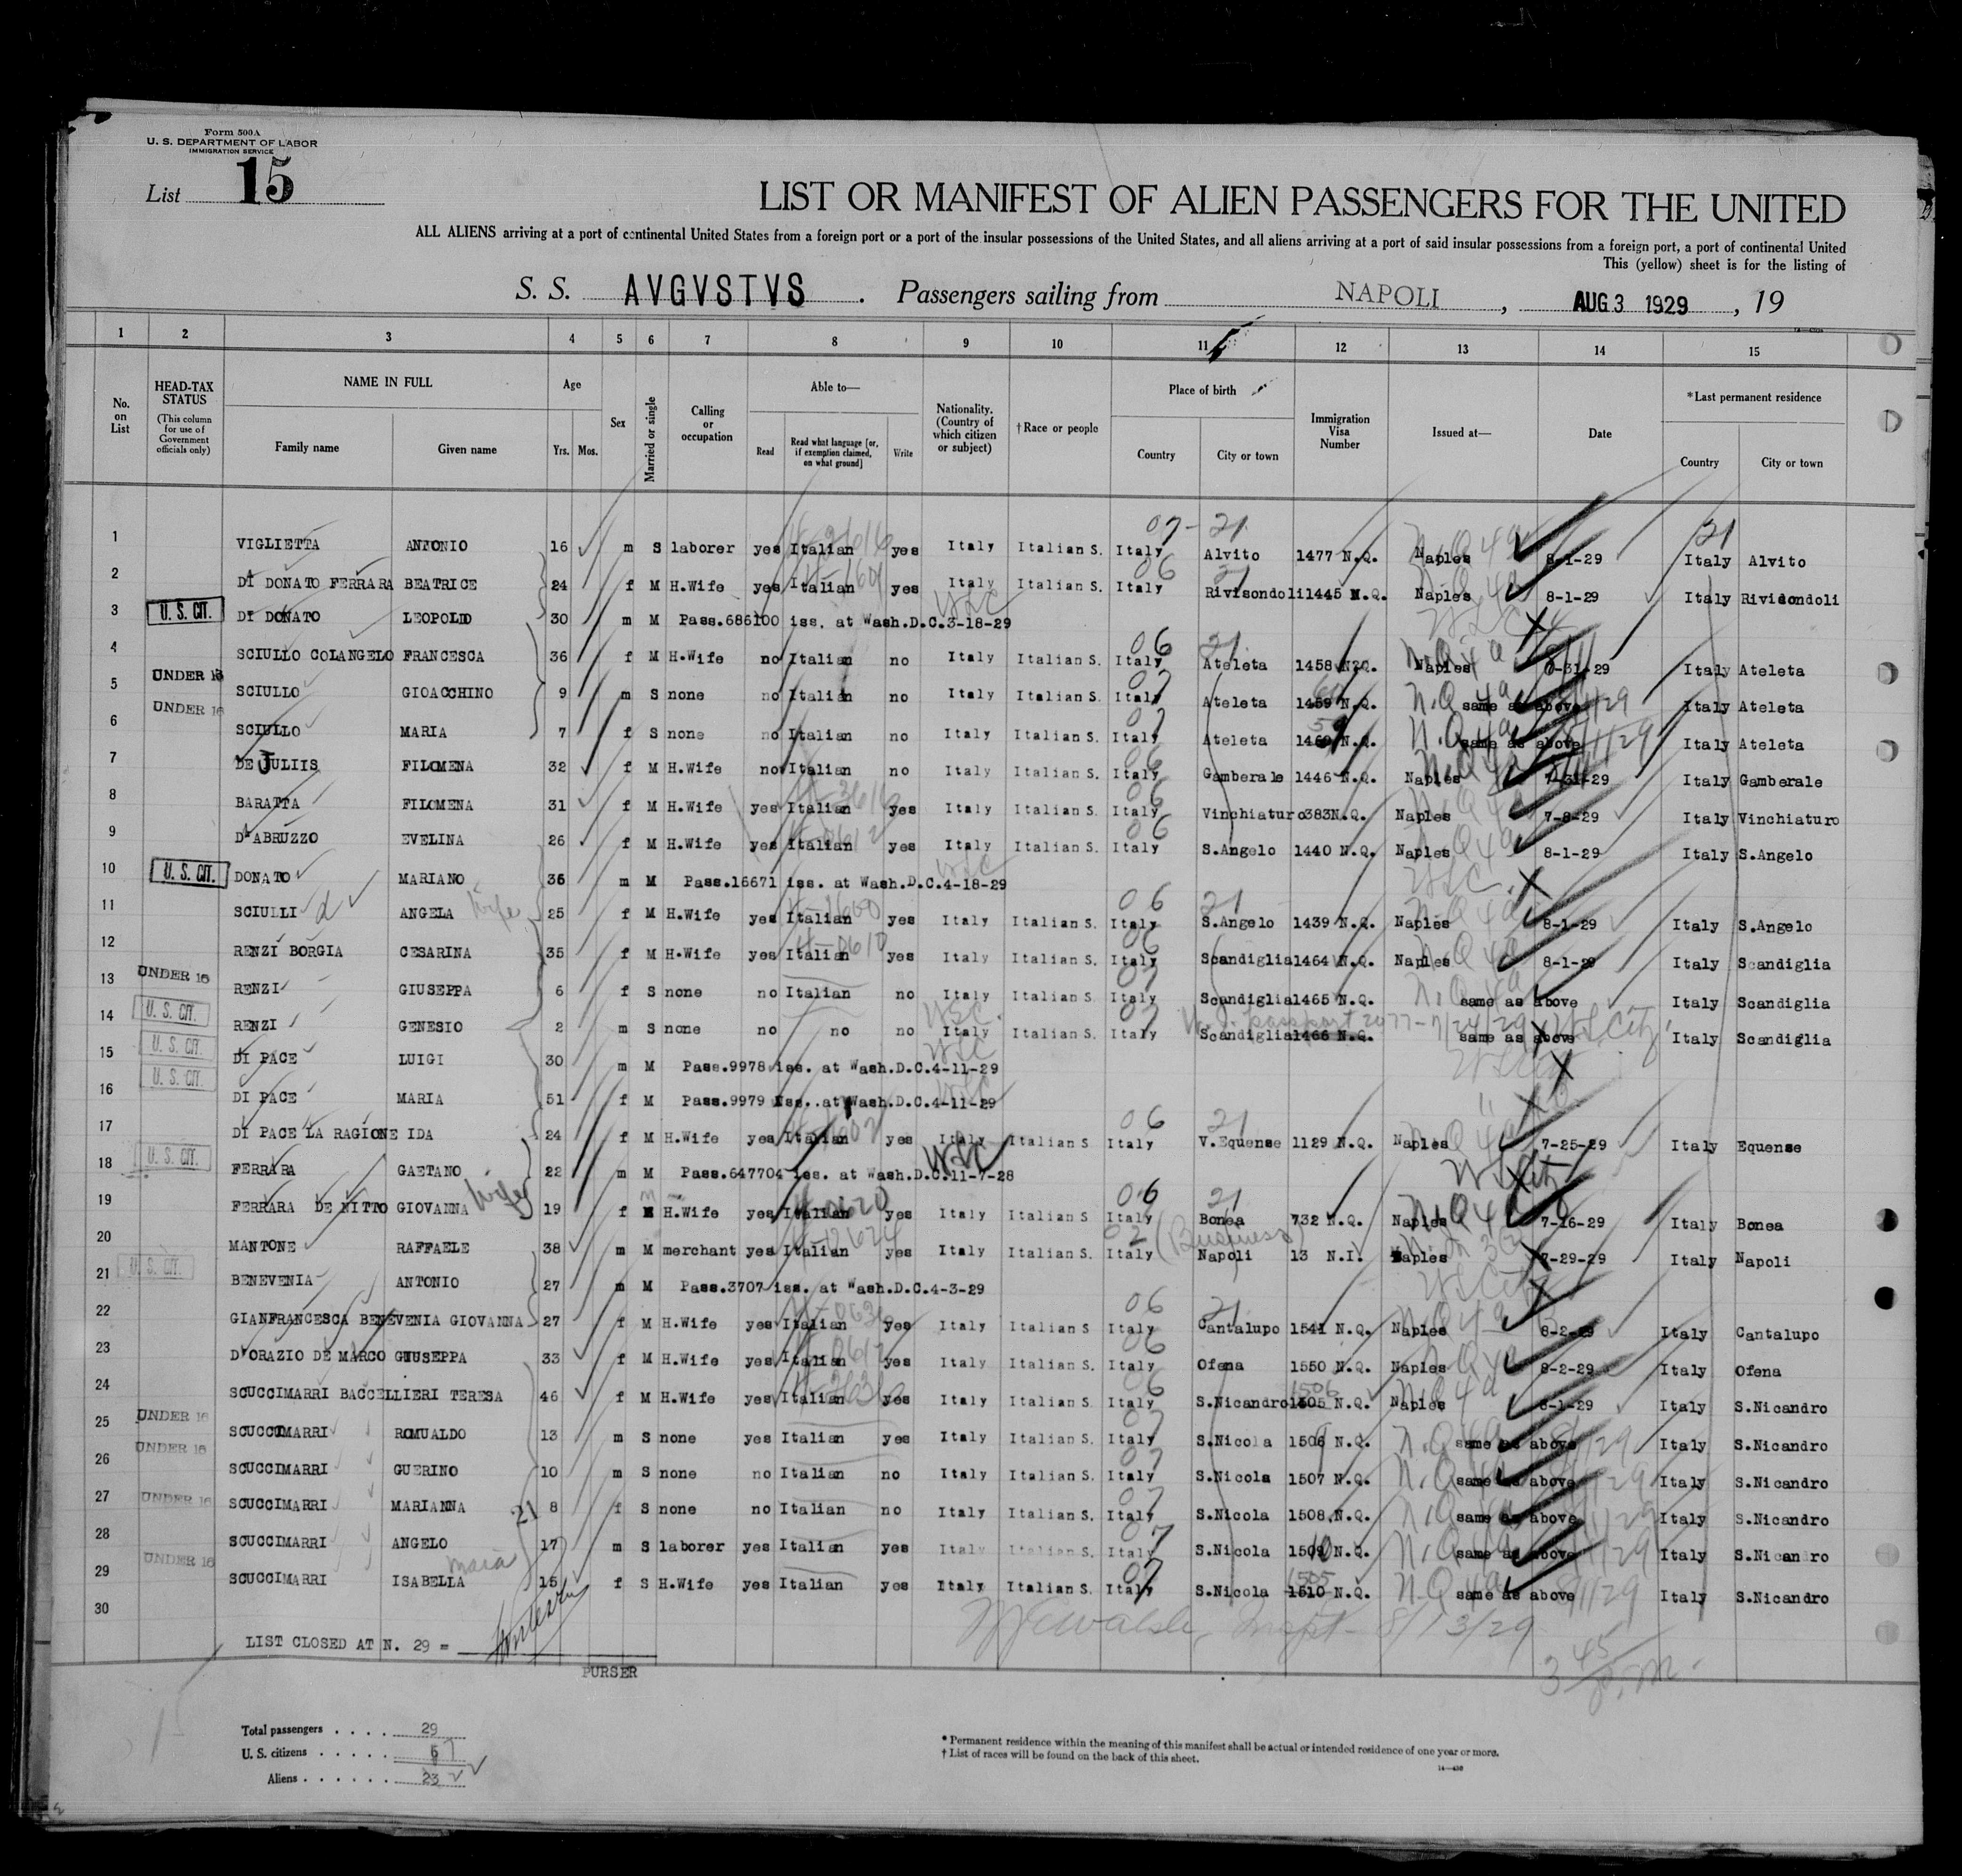 Form 500A
U. S. DEPARTMENT OF LABOR
IMMIGRATION SERVICE
List 15
LIST OR MANIFEST OF ALIEN PASSENGERS FOR THE UNITED
ALL ALIENS arriving at a port of continental United States from a foreign port or a port of the insular possessions of the United States, and all aliens arriving at a port of said insular possessions from a foreign port, a port of continental United
This (yellow) sheet is for the listing of
S. S. AVGVSTVS . Passengers sailing from NAPOLI , AUG 3 1929 , 19
1 2 3 4 5 6 7 8 9 10 11 12 13 14 15
No. on List
HEAD-TAX STATUS (This column for use of Government officials only)
NAME IN FULL
Family name Given name
Age Yrs. Mos.
Sex
Married or single
Calling or occupation
Able to—
Read Read what language [or, if exemption claimed, on what ground] Write
Nationality. (Country of which citizen or subject)
†Race or people
Place of birth
Country City or town
Immigration Visa Number
Issued at—
Date
*Last permanent residence
Country City or town
1 VIGLIETTA ANTONIO 16 m S laborer yes Italian yes Italy Italian S. Italy Alvito 1477 N.Q. Naples 8-1-29 Italy Alvito
2 DI DONATO FERRARA BEATRICE 24 f M H.Wife yes Italian yes Italy Italian S. Italy Rivisondoli 1445 N.Q. Naples 8-1-29 Italy Rivisondoli
3 U. S. CIT. DI DONATO LEOPOLDO 30 m M Pass.686100 iss. at Wash.D.C.3-18-29
4 SCIULLO COLANGELO FRANCESCA 36 f M H.Wife no Italian no Italy Italian S. Italy Ateleta 1458 N.Q. Naples 7-31-29 Italy Ateleta
5 UNDER 16 SCIULLO GIOACCHINO 9 m S none no Italian no Italy Italian S. Italy Ateleta 1459 N.Q. same as above Italy Ateleta
6 UNDER 16 SCIULLO MARIA 7 f S none no Italian no Italy Italian S. Italy Ateleta N.Q. same as above Italy Ateleta
7 DE JULIIS FILOMENA 32 f M H.Wife no Italian no Italy Italian S. Italy Gamberale 1446 N.Q. Naples 7-31-29 Italy Gamberale
8 BARATTA FILOMENA 31 f M H.Wife yes Italian yes Italy Italian S. Italy Vinchiaturo 383 N.Q. Naples 7-8-29 Italy Vinchiaturo
9 D'ABRUZZO EVELINA 26 f M H.Wife yes Italian yes Italy Italian S. Italy S.Angelo 1440 N.Q. Naples 8-1-29 Italy S.Angelo
10 U. S. CIT. DONATO MARIANO 36 m M Pass.16671 iss. at Wash.D.C.4-18-29
11 SCIULLI ANGELA wife 25 f M H.Wife yes Italian yes Italy Italian S. Italy S.Angelo 1439 N.Q. Naples 8-1-29 Italy S.Angelo
12 RENZI BORGIA CESARINA 35 f M H.Wife yes Italian yes Italy Italian S. Italy Scandiglia 1464 N.Q. Naples 8-1-29 Italy Scandiglia
13 UNDER 16 RENZI GIUSEPPA 6 f S none no Italian no Italy Italian S. Italy Scandiglia 1465 N.Q. same as above Italy Scandiglia
14 U. S. CIT. RENZI GENESIO 2 m S none no no no Italy Italian S. Italy Scandiglia 1466 N.Q. same as above Italy Scandiglia
15 U. S. CIT. DI PACE LUIGI 30 m M Pass.9978 iss. at Wash.D.C.4-11-29
16 U. S. CIT. DI PACE MARIA 51 f M Pass.9979 iss. at Wash.D.C.4-11-29
17 DI PACE LA RAGIONE IDA 24 f M H.Wife yes Italian yes Italy Italian S Italy V.Equense 1129 N.Q. Naples 7-25-29 Italy Equense
18 U. S. CIT. FERRARA GAETANO 22 m M Pass.647704 iss. at Wash.D.C.11-7-28
19 FERRARA DE NITTO GIOVANNA wife 19 f M H.Wife yes Italian yes Italy Italian S Italy Bonea 732 N.Q. Naples 7-16-29 Italy Bonea
20 MANTONE RAFFAELE 38 m M merchant yes Italian yes Italy Italian S. Italy (Business) Napoli 13 N.I. Naples 7-29-29 Italy Napoli
21 U. S. CIT. BENEVENIA ANTONIO 27 m M Pass.3707 iss. at Wash.D.C.4-3-29
22 GIANFRANCESCA BENEVENIA GIOVANNA 27 f M H.Wife yes Italian yes Italy Italian S Italy Cantalupo 1541 N.Q. Naples 8-2-29 Italy Cantalupo
23 D'ORAZIO DE MARCO GIUSEPPA 33 f M H.Wife yes Italian yes Italy Italian S. Italy Ofena 1550 N.Q. Naples 8-2-29 Italy Ofena
24 SCUCCIMARRI BACCELLIERI TERESA 46 f M H.Wife yes Italian yes Italy Italian S. Italy S.Nicandro 1506 N.Q. Naples 8-1-29 Italy S.Nicandro
25 UNDER 16 SCUCCIMARRI ROMUALDO 13 m S none yes Italian yes Italy Italian S. Italy S.Nicola N.Q. same as above Italy S.Nicandro
26 UNDER 16 SCUCCIMARRI GUERINO 10 m S none no Italian no Italy Italian S. Italy S.Nicola 1507 N.Q. same as above Italy S.Nicandro
27 UNDER 16 SCUCCIMARRI MARIANNA 8 f S none no Italian no Italy Italian S. Italy S.Nicola 1508 N.Q. same as above Italy S.Nicandro
28 SCUCCIMARRI ANGELO 17 m S laborer yes Italian yes Italy Italian S. Italy S.Nicola N.Q. same as above Italy S.Nicandro
29 UNDER 16 SCUCCIMARRI ISABELLA maria 15 f S H.Wife yes Italian yes Italy Italian S. Italy S.Nicola 1505 1510 N.Q. same as above 8/1/29 Italy S.Nicandro
30
8/13/29
LIST CLOSED AT N. 29 =
3 45 p.m.
PURSER
Total passengers . . . . 29
U. S. citizens . . . . .
Aliens . . . . . .
* Permanent residence within the meaning of this manifest shall be actual or intended residence of one year or more.
† List of races will be found on the back of this sheet.